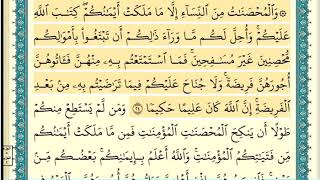 ۞ وَٱلْمُحْصَنَٰتُ مِنَ ٱلنِّسَآءِ إِلَّا مَا مَلَكَتْ أَيْمَٰنُكُمْ ۖ كِتَٰبَ ٱللَّهِ
عَلَيْكُمْ ۚ وَأُحِلَّ لَكُم مَّا وَرَآءَ ذَٰلِكُمْ أَن تَبْتَغُوا۟ بِأَمْوَٰلِكُم
مُّحْصِنِينَ غَيْرَ مُسَٰفِحِينَ ۚ فَمَا ٱسْتَمْتَعْتُم بِهِۦ مِنْهُنَّ فَـَٔاتُوهُنَّ
أُجُورَهُنَّ فَرِيضَةً ۚ وَلَا جُنَاحَ عَلَيْكُمْ فِيمَا تَرَٰضَيْتُم بِهِۦ مِنۢ بَعْدِ
ٱلْفَرِيضَةِ ۚ إِنَّ ٱللَّهَ كَانَ عَلِيمًا حَكِيمًا ٢٤ وَمَن لَّمْ يَسْتَطِعْ مِنكُمْ
طَوْلًا أَن يَنكِحَ ٱلْمُحْصَنَٰتِ ٱلْمُؤْمِنَٰتِ فَمِن مَّا مَلَكَتْ أَيْمَٰنُكُم
مِّن فَتَيَٰتِكُمُ ٱلْمُؤْمِنَٰتِ ۚ وَٱللَّهُ أَعْلَمُ بِإِيمَٰنِكُم ۚ بَعْضُكُم مِّنۢ